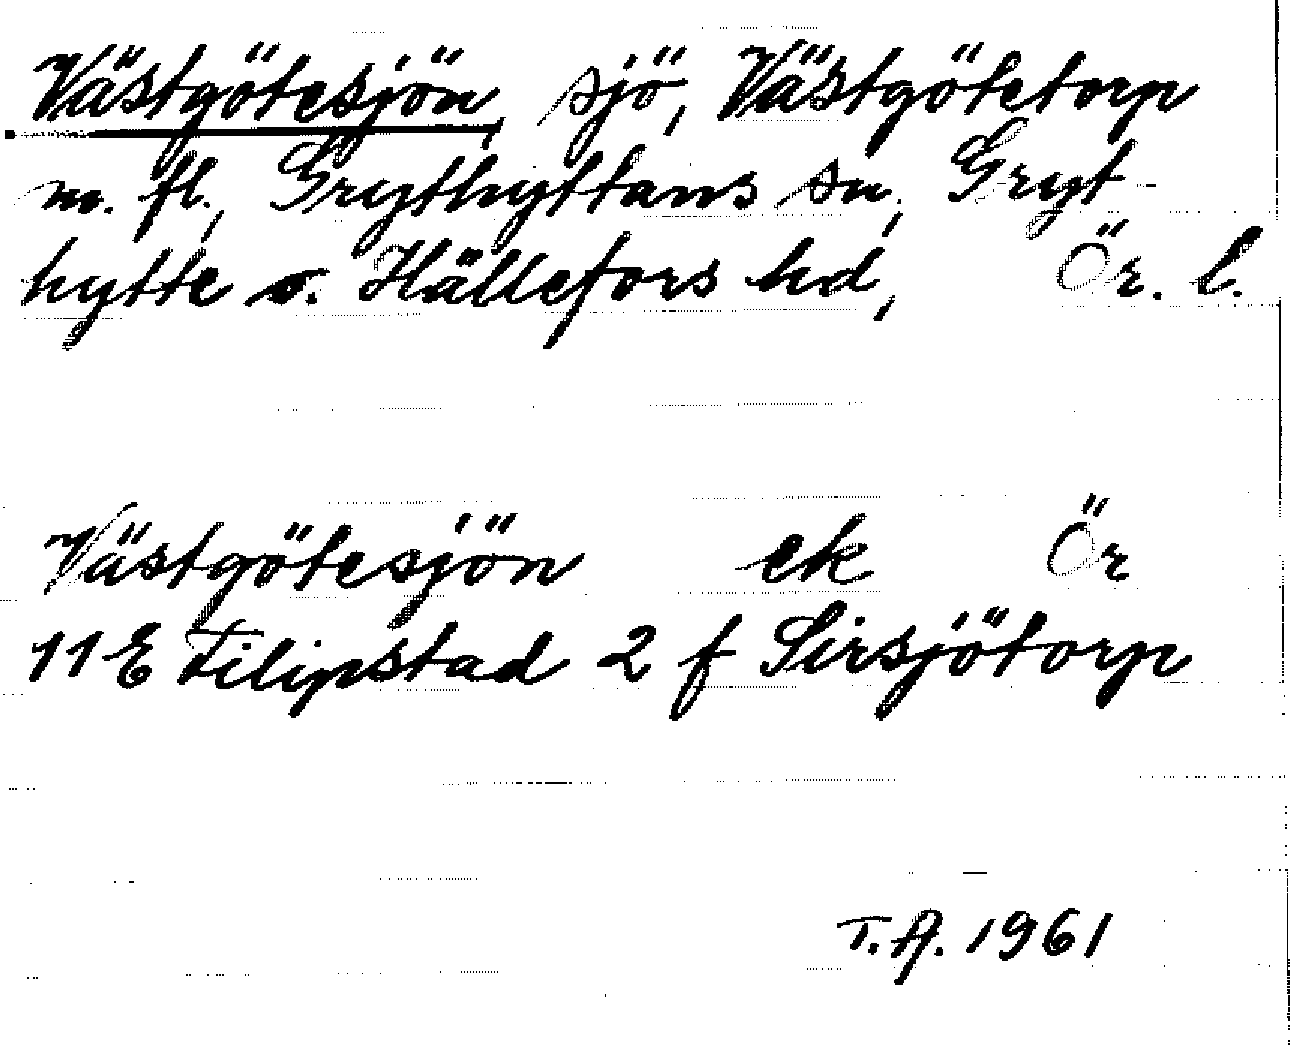 Västgötesjön, sjö, Västgötetorp
m. fl., Grythyttans sn, Gryt-
hytte o. Hällefors hd, Ör. l.
Västgötesjön ek Ör
11 E Filipstad 2 f Sirsjötorp
T.A. 1961